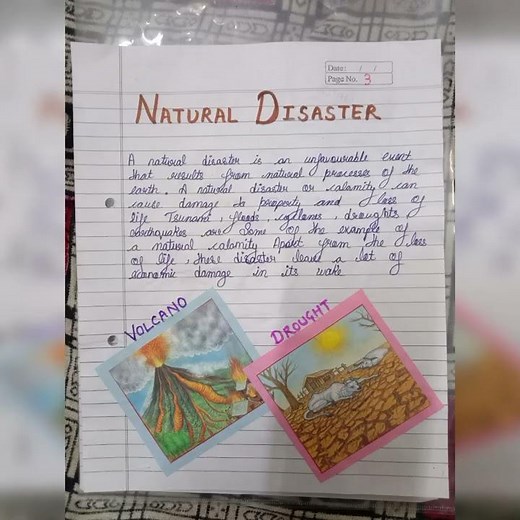 Date: / /
Page No. 3
NATURAL DISASTER
A natural disaster is an unfavourable event
that results from natural processes of the
earth. A natural disaster or calamity can
cause damage to property and loss of
life Tsunami, floods, cyclones, droughts
earthquakes are Some of the example of
a natural calamity Apart from the loss
of life, these disaster leave a lot of
economic damage in its wake
VOLCANO
DROUGHT